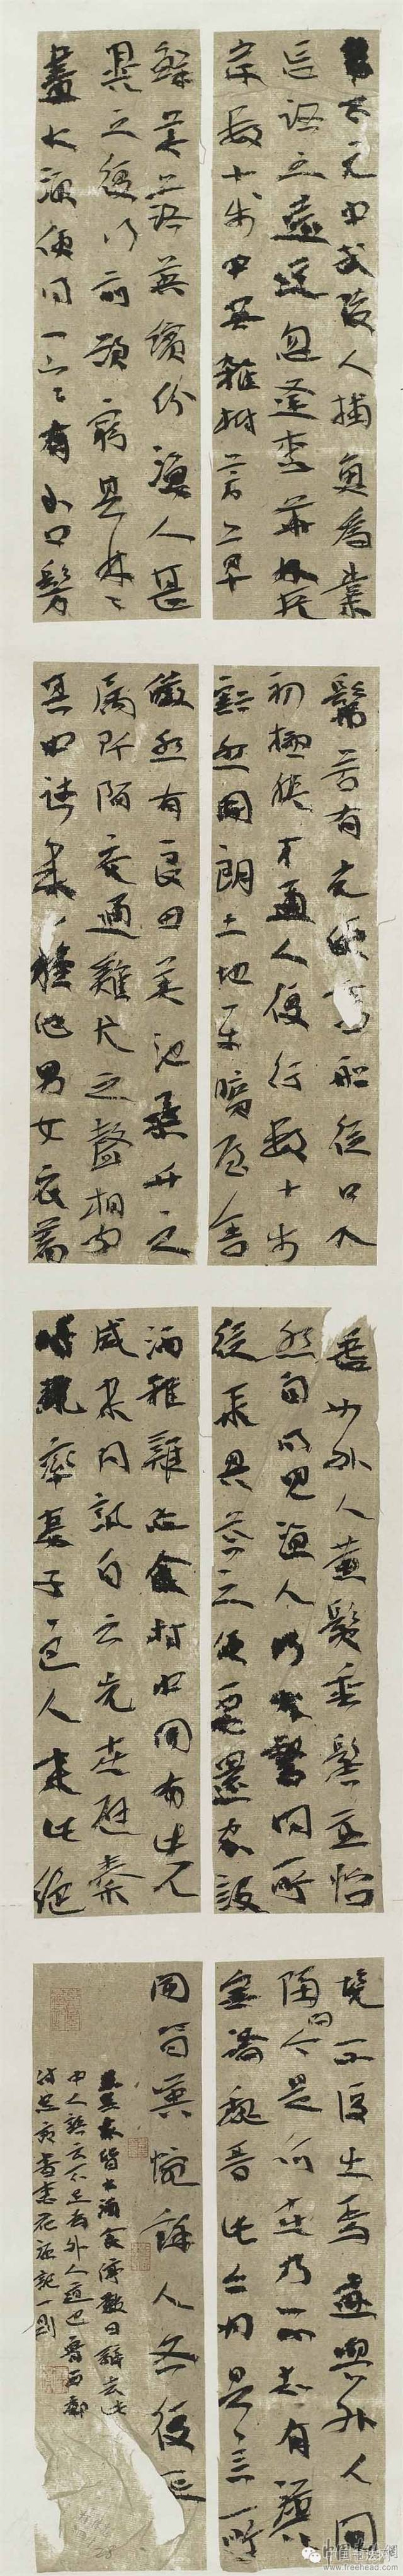 晉太元中武陵人捕魚為業
忘路之遠近忽逢桃華林夾
岸數十步中無雜樹芳草
鮮美落英繽紛漁人甚
異之復行前頭窮其林々
盡水源便得一山々有小口髣
髴若有光便舍船從口入
初極狹才通人復行數十步
豁然開朗土地平曠屋舍
儼然有良田美池桑竹之
屬阡陌交通雞犬之聲相聞
其中往來種作男女衣著
悉如外人黃髮垂髫並怡
然自樂見漁人乃大驚問所
從來具答之便要還家設
酒殺雞作食村中聞有此人
咸來問訊自云先世避秦
時亂率妻子邑人來此絕
境不復出焉遂與外人間
隔問今是何世乃不知有漢
無論魏晉此人為具言所
聞皆嘆惋餘人各復延
至其家皆出酒食停數日辭去此
中人語云不足為外人道也
書桃花源記一則
www.freehead.com